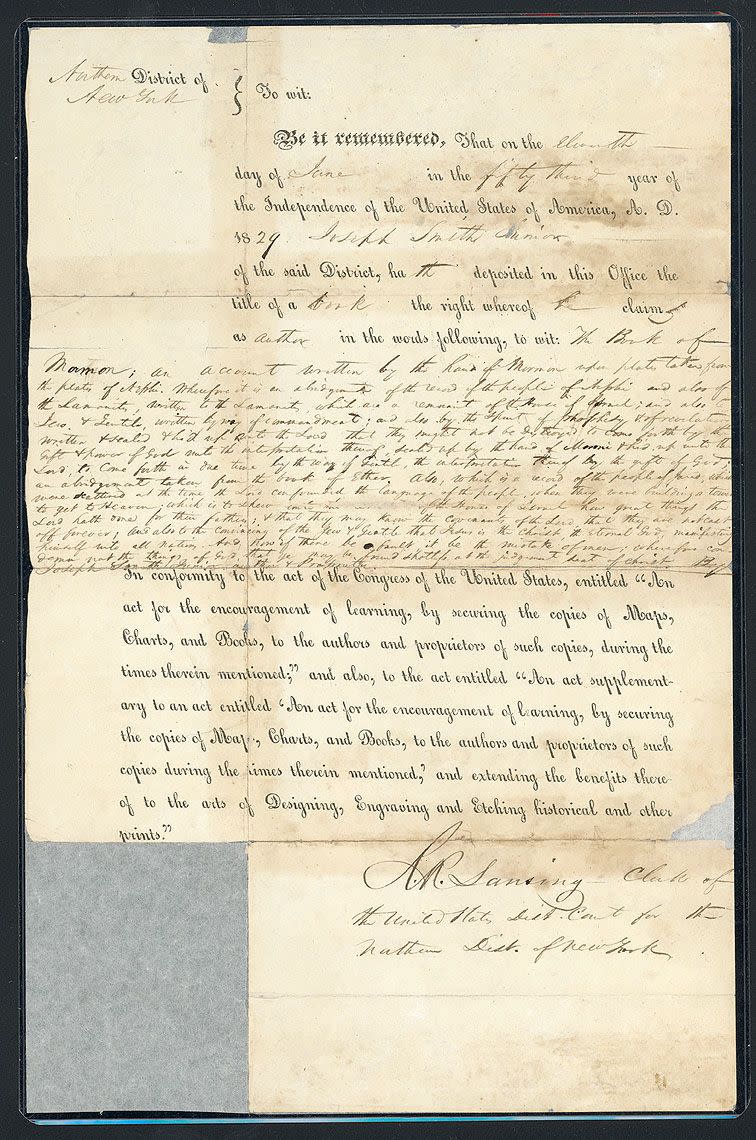 Northern District of
New York
} To wit:
Be it remembered, That on the eleventh
day of June in the fifty third year of
the Independence of the United States of America, A. D.
1829 Joseph Smith Junior
of the said District, ha th deposited in this Office the
title of a book the right whereof he claims
as author in the words following, to wit: The Book of
Mormon; an account written by the hand of Mormon upon plates taken from
the plates of Nephi. Wherefore it is an abridgment of the record of the people of Nephi and also of
the Lamanites, written to the Lamanites, which are a remnant of the House of Israel; and also
Jew & Gentile, written by way of commandment; and also by the Spirit of Prophesy & of revelation
written & sealed & hid up unto the Lord that they might not be destroyed to come forth by the
gift & power of God unto the interpretation thereof, sealed up by the hand of Moroni & hid up unto the
Lord, to come forth in due time by the way of Gentile, the interpretation thereof by the gift of God;
an abridgment taken from the book of Ether. Also, which is a record of the people of Jared, which
were scattered at the time the Lord confounded the language of the people when they were building a tower
to get to Heaven, which is to shew unto the House of Israel how great things the
Lord hath done for their fathers; & that they may know the covenants of the Lord that they are not cast
off forever; and also to the convincing of the Jew & Gentile that Jesus is the Christ, the eternal God, manifesting
himself unto all nations. And now if there be fault it be the mistake of men; wherefore con
demn not the things of God, that ye may be found spotless at the judgment seat of Christ. By
Joseph Smith Junior author & proprietor
In conformity to the act of the Congress of the United States, entitled "An
act for the encouragement of learning, by securing the copies of Maps,
Charts, and Books, to the authors and proprietors of such copies, during the
times therein mentioned;" and also, to the act entitled "An act supplement-
ary to an act entitled 'An act for the encouragement of learning, by securing
the copies of Maps, Charts, and Books, to the authors and proprietors of such
copies during the times therein mentioned,' and extending the benefits there-
of to the arts of Designing, Engraving and Etching historical and other
prints."
R.R. Lansing Clerk of
the United States Dist. Court for the
Northern Dist. of New York.